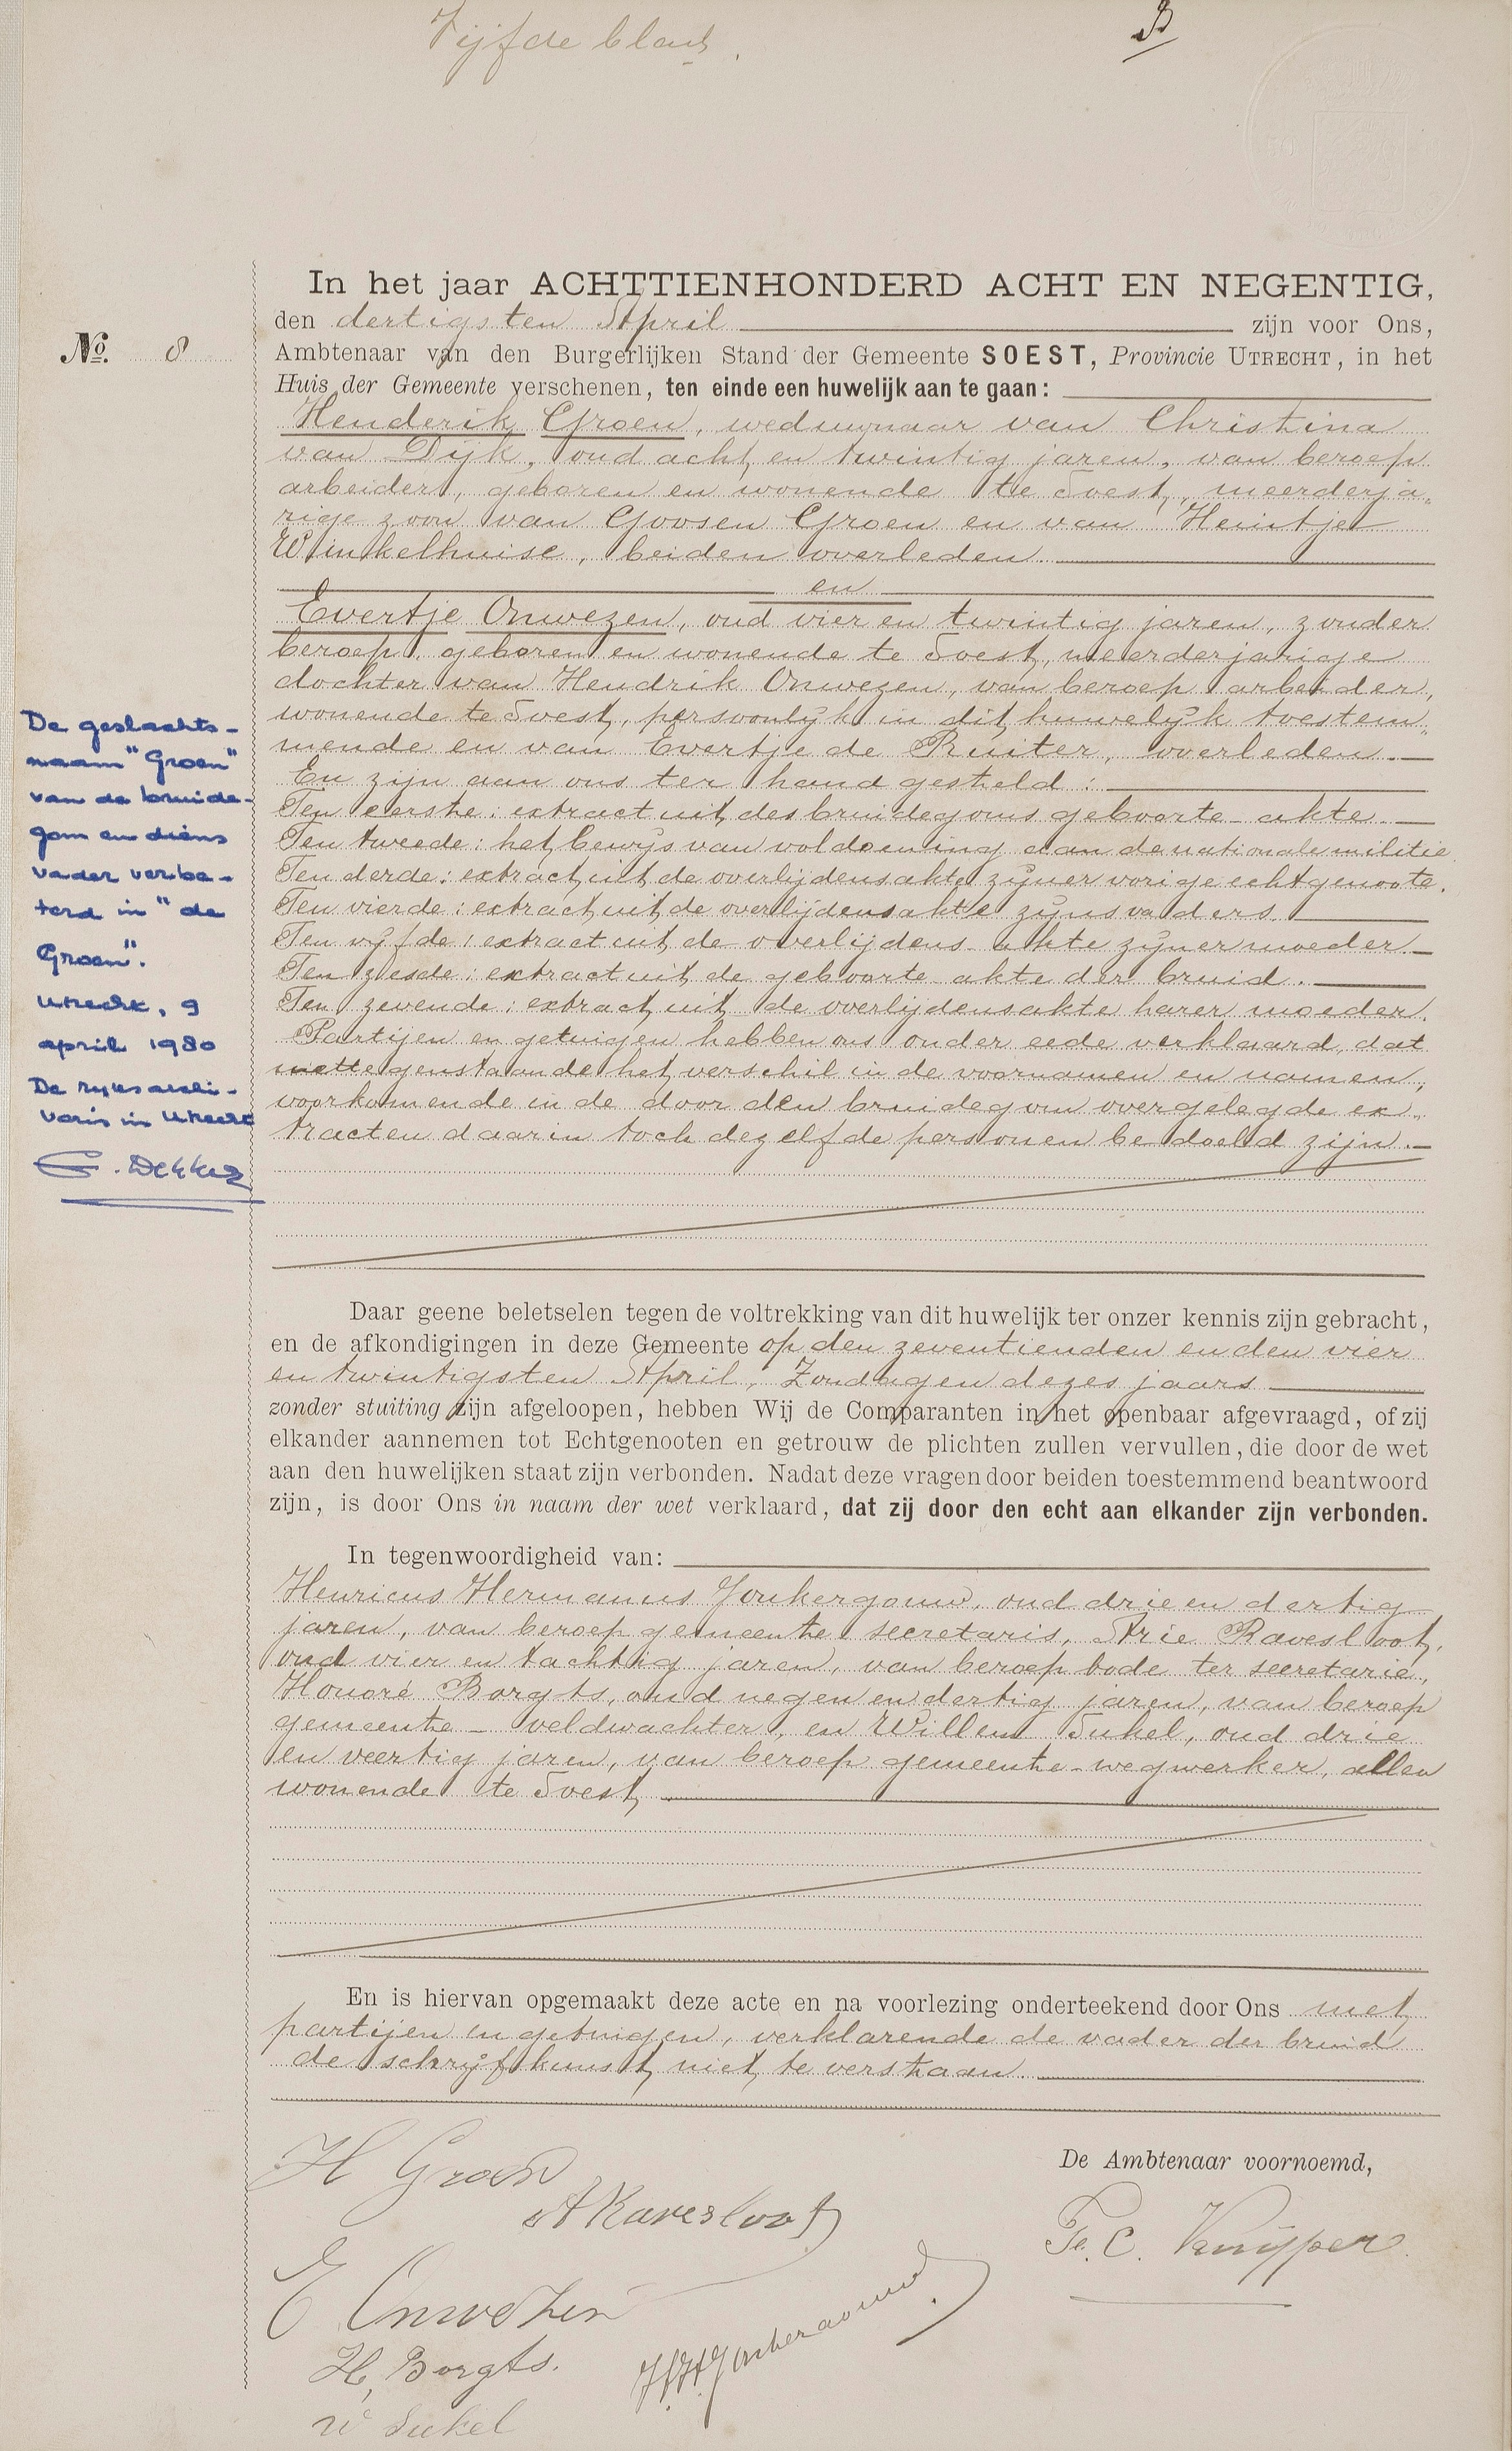 Vijfde blad.
B
In het jaar ACHTTIENHONDERD ACHT EN NEGENTIG,
den dertigsten April zijn voor Ons,
No. 8
Ambtenaar van den Burgerlijken Stand der Gemeente SOEST, Provincie UTRECHT, in het
Huis der Gemeente verschenen, ten einde een huwelijk aan te gaan:
Henderik Groen, weduwnaar van Christina
van Dijk, oud acht en twintig jaren, van beroep
arbeider, geboren en wonende te Soest, meerderja„
rige zoon van Goosen Groen en van Heintje
Winkelhuise, beiden overleden.
en
Evertje Onwezen, oud vier en twintig jaren, zonder
beroep, geboren en wonende te Soest, meerderjarige
dochter van Hendrik Onwezen, van beroep arbeider,
wonende te Soest, persoonlijk in dit huwelijk toestem„
mende en van Evertje de Ruiter, overleden.
En zijn aan ons ter hand gesteld:
Ten eerste: extract uit des bruidegoms geboorte-akte.
Ten tweede: het bewijs van voldoening aan de nationale militie
Ten derde: extract uit de overlijdensakte zijner vorige echtgenoote.
Ten vierde: extract uit de overlijdensakte zijns vaders
Ten vijfde: extract uit de overlijdens-akte zijner moeder.
Ten zesde: extract uit de geboorte-akte der bruid.
Ten zevende: extract uit de overlijdensakte harer moeder.
Partijen en getuigen hebben ons onder eede verklaard, dat
niettegenstaande het verschil in de voornamen en namen,
voorkomende in de door den bruidegom overgelegde ex„
tracten daarin toch dezelfde personen bedoeld zijn.
De geslachts-
naam "Groen"
van de bruide-
gom en diens
vader verbe-
terd in "de
Groen".
Utrecht, 9
april 1980
De rijksarchi-
varis in Utrecht
G. Dekker
Daar geene beletselen tegen de voltrekking van dit huwelijk ter onzer kennis zijn gebracht,
en de afkondigingen in deze Gemeente op den zeventienden en den vier
en twintigsten April, Zondagen dezes jaars
zonder stuiting zijn afgeloopen, hebben Wij de Comparanten in het openbaar afgevraagd, of zij
elkander aannemen tot Echtgenooten en getrouw de plichten zullen vervullen, die door de wet
aan den huwelijken staat zijn verbonden. Nadat deze vragen door beiden toestemmend beantwoord
zijn, is door Ons in naam der wet verklaard, dat zij door den echt aan elkander zijn verbonden.
In tegenwoordigheid van:
Henricus Hermanus Jonkergouw, oud drie en dertig
jaren, van beroep gemeente secretaris, Arie Ravesloot,
oud vier en tachtig jaren, van beroep bode ter secretarie,
Honoré Borgts, oud negen en dertig jaren, van beroep
gemeente-veldwachter, en Willem Sukel, oud drie
en veertig jaren, van beroep gemeente-wegwerker, allen
wonende te Soest
En is hiervan opgemaakt deze acte en na voorlezing onderteekend door Ons met
partijen en getuigen, verklarende de vader der bruid
de schrijfkunst niet te verstaan.
De Ambtenaar voornoemd,
H Groen
A Ravesloot
E Onwezen
H, Borgts.
HHJonkergouw
W Sukel